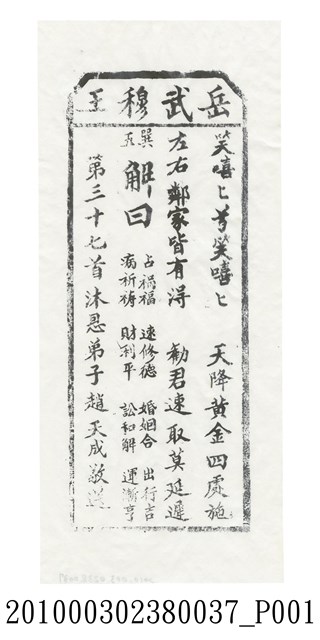 岳武穆王
笑嘻〻兮笑嘻〻 天降黃金四處施
左右鄰家皆有得 勸君速取莫延遲
巽五 解曰 占禍福 速修德 婚姻合 出行吉
病祈禱 財利平 訟和解 運漸亨
第三十七首沐恩弟子趙天成敬送
201000302380037_P001